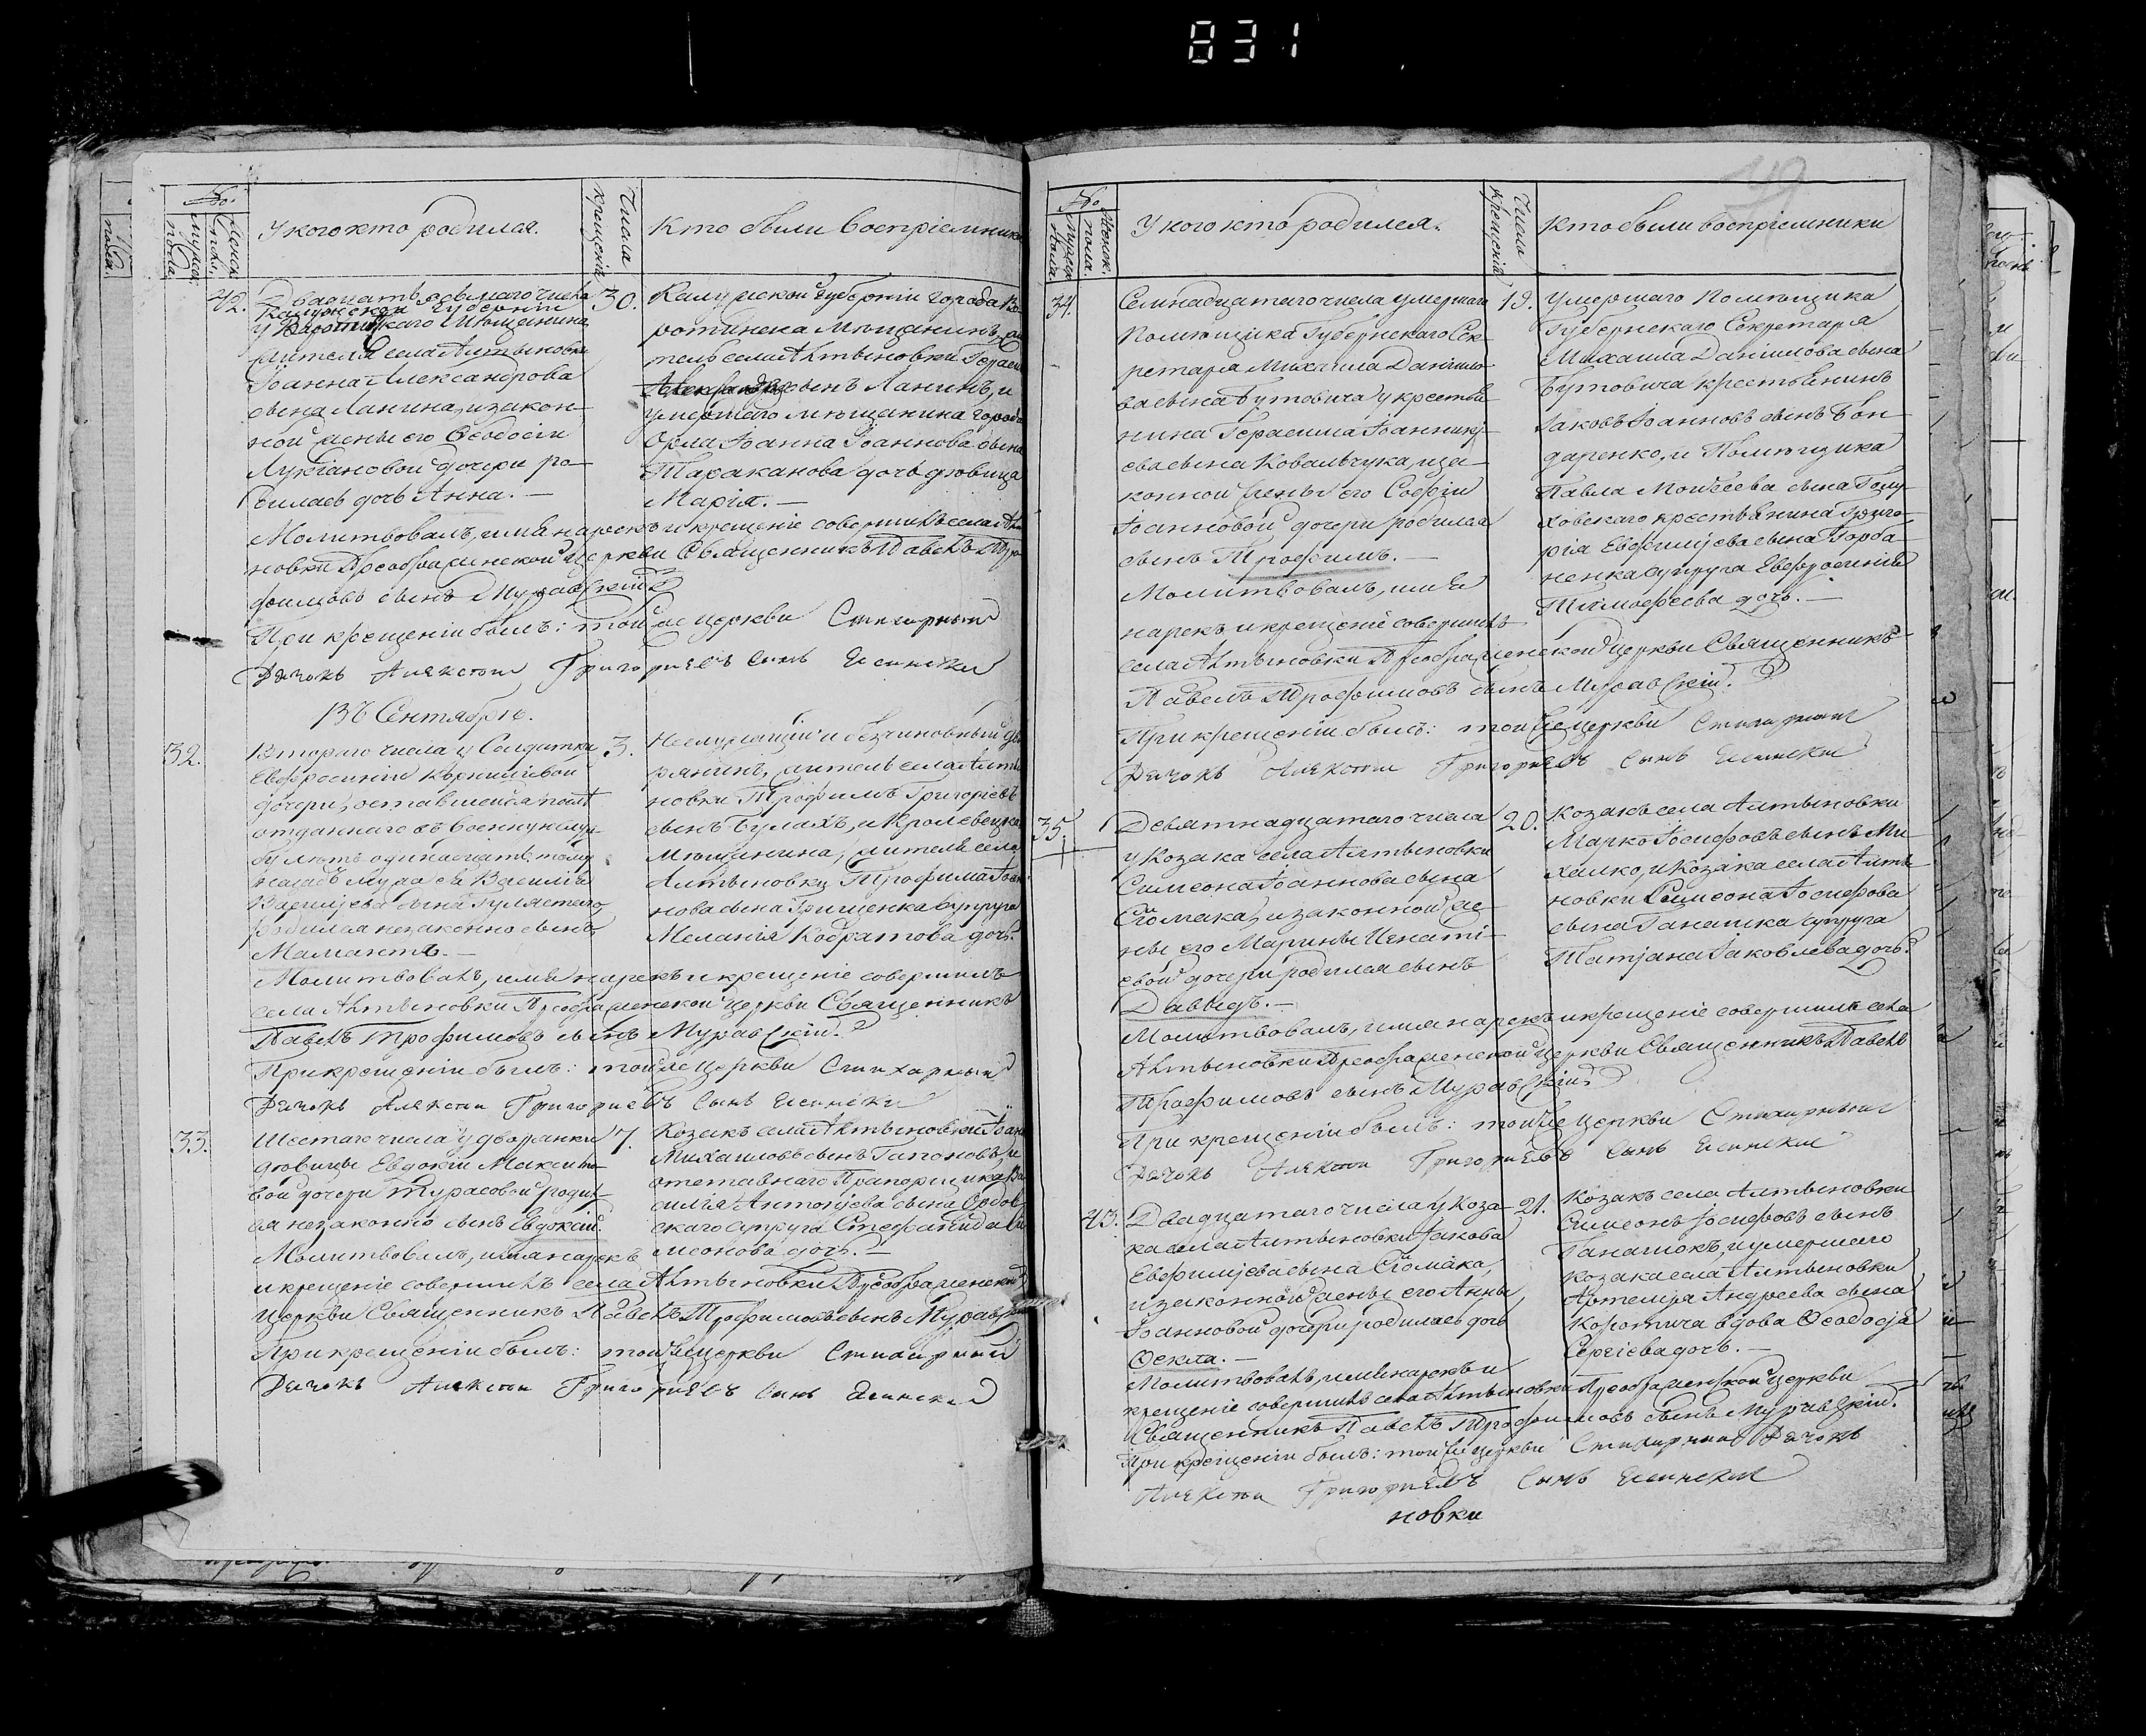 831
№.
мужеск. пола.
женск. пола.
У кого кто родился.
Числа крещенія
Кто были воспріемники
42.
Двадцать седьмаго числа
Калужской губерніи
у Воротинскаго Мѣщанина
жителя села Алтыновки
Іоанна Александрова
сына Ланина, и закон-
ной жены его Ѳеодосіи
Лукіановой дочери ро-
дилась дочь Анна. —
30.
Калужской Губерніи города Во-
ротинска Мѣщанинъ, жи-
тель села Алтыновки
сынъ Ланинъ, и
умершаго мѣщанина города
Орла Іоанна Іоаннова сына
Тараканова дочь дѣвица
Марія. —
Молитвовалъ, имя нарекъ и крещеніе совершилъ села Алты-
новки Преображенской церкви Священникъ Павелъ Тро-
фимовъ сынъ Муравскій
При крещеніи былъ: той же церкви Стихарный
Дячокъ Алексѣи Григориевъ Сынъ Есински
Въ Сентябрѣ.
32.
Втораго числа у Солдатки
Евфросиніи Корниліевой
дочери, оставшейся послѣ
отданнаго въ военную служ-
бу лѣтъ одинадцать тому
назадъ мужа ея Василія
Васильева сына Гулястаго,
родился незаконно сынъ
Мамантъ. —
3.
Неслужащій и безчиновный дво-
рянинъ, житель села Алты-
новки Трофимъ Григоріевъ
сынъ Булахъ, и Кролевецкаго
Мѣщанина, жителя села
Алтыновки Трофима Іоан-
нова сына Грищенка супруга
Меланія Кодратова дочь.
Молитвовалъ, имя нарекъ и крещеніе совершилъ
села Алтыновки Преображенской церкви Священникъ
Павелъ Трофимовъ сынъ Муравскій.
При крещеніи былъ: той же церкви Стихарный
Дячокъ Алексѣи Григориевъ Сынъ Есински
33.
Шестаго числа у дворянки
дѣвицы Евдокіи Максимо-
вой дочери Турасовой родил-
ся незаконно сынъ Евдокій.
7.
Козакъ села Алтыновки Іоан
Михаиловъ сынъ Гапоновъ, и
отставнаго Прапорщика Ва-
силія Антоніева сына Ордов-
скаго супруга Стефанида Си-
меонова дочь. —
Молитвовалъ, имя нарекъ
и крещеніе совершилъ села Алтыновки Преображенской
церкви Священникъ Павелъ Трофимовъ сынъ Муравскій
При крещеніи былъ: той же церкви Стихарный
Дячокъ Алексѣи Григориевъ Сынъ Есински
№.
мужеск. пола.
женск. пола.
У кого кто родился.
Числа крещенія
Кто были воспріемники
34.
Семнадцатаго числа умершаго
Помѣщика Губернскаго Сек-
ретаря Михаила Данило-
ва сына Бутовича у крестья-
нина Герасима Іоанникі-
ева сына Ковальчука, и за-
конной жены его Софіи
Іоанновой дочери родился
сынъ Трофимъ. —
19.
Умершаго Помѣщика
Губернскаго Секретаря
Михаила Данилова сына
Бутовича крестьянинъ
Іаковъ Іоанновъ сынъ Бон-
даренко, и Помѣщика
Павла Моисеева сына Голу-
ховскаго крестьянина Григо-
рія Евфиміева сына Горба-
ненка супруга Евфросинія
Тимоѳеева дочь. —
Молитвовалъ, имя
нарекъ, и крещеніе совершилъ
села Алтыновки Преображенской церкви Священникъ
Павелъ Трофимовъ сынъ Муравскій.
При крещеніи былъ: той же церкви Стихарный
Дячокъ Алексѣи Григориевъ Сынъ Есински
35.
Девятнадцатаго числа
у Козака села Алтыновки
Симеона Іоаннова сына
Сіомака, и законной же-
ны его Марины Игнаті-
евой дочери родился сынъ
Давыдъ. —
20.
Козакъ села Алтыновки
Марко Іосифовъ сынъ Ми-
халко, и Козака села Алты-
новки Симеона Іосифова
сына Ганашка супруга
Татіана Іаковлева дочь.
Молитвовалъ, имя нарекъ и крещеніе совершилъ села
Алтыновки Преображенской церкви Священникъ Павелъ
Трофимовъ сынъ Муравскій
При крещеніи былъ: той же церкви Стихарный
Дячокъ Алексѣи Григориевъ Сынъ Есински
43.
Двадцатаго числа у Коза-
ка села Алтыновки Іакова
Евфиміева сына Сіомака,
и законной жены его Анны
Іоанновой дочери родилась дочь
Ѳекла. —
21.
Козакъ села Алтыновки
Симеонъ Іосифовъ сынъ
Ганашокъ, и умершаго
Козака села Алтыновки
Артемія Андреева сына
Коротича вдова Ѳеодосія
Сергіева дочь. —
Молитвовалъ, имя нарекъ и
крещеніе совершилъ села Алтыновки Преображенской церкви
Священникъ Павелъ Трофимовъ сынъ Муравскій.
При крещеніи былъ: той же церкви Стихарный Дячокъ
Алексѣи Григориевъ Сынъ Есински
новки